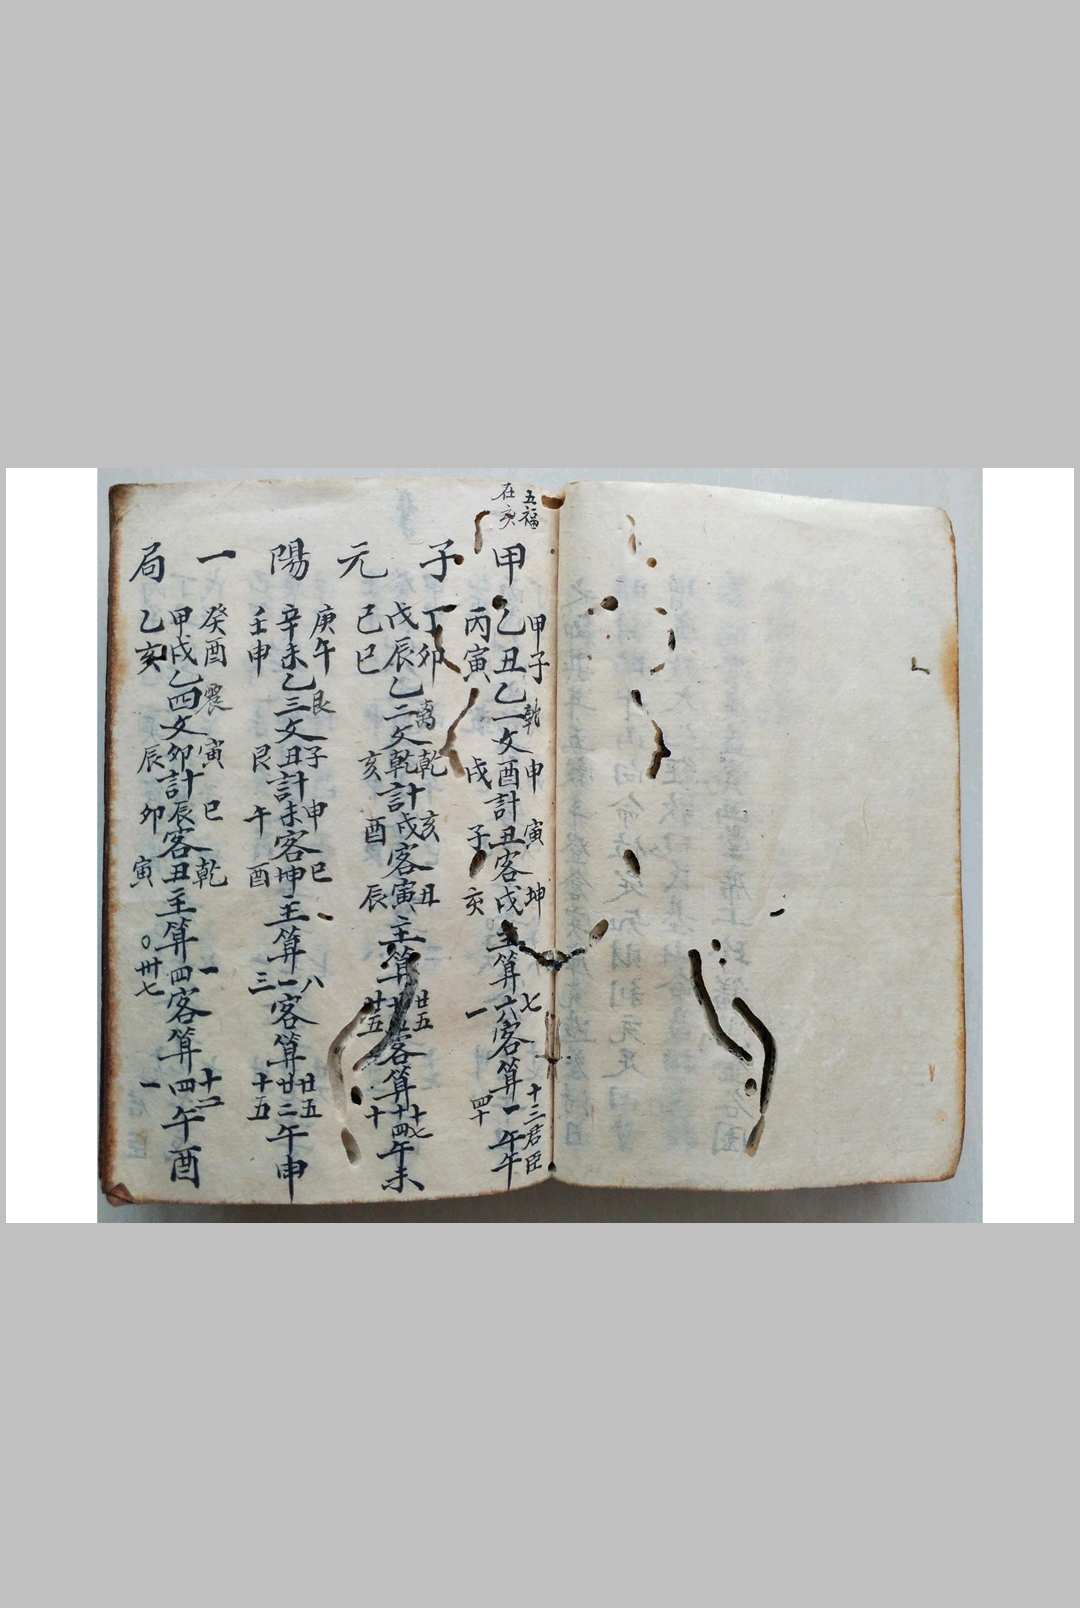 五福
在亥
甲子元陽一局
甲子 乾 申 寅 坤 七 十三 君臣
乙丑 乙一 文酉 計丑 客戌 主算六 客算一 午午
丙寅 戌 子 亥 一 四十
丁卯 离 乾 亥 丑 廿五 十七
戊辰 乙二 文乾 計戌 客寅 主算 客算十四 午未
己巳 亥 酉 辰 廿五 十
庚午 艮 子 申 巳 八 廿五
辛未 乙三 文丑 計未 客坤 主算一 客算廿二 午申
壬申 艮 午 酉 三 十五
癸酉 震 寅 巳 乾 一 十二
甲戌 乙四 文卯 計辰 客丑 主算四 客算四 午酉
乙亥 辰 卯 寅 〇 卅七 一